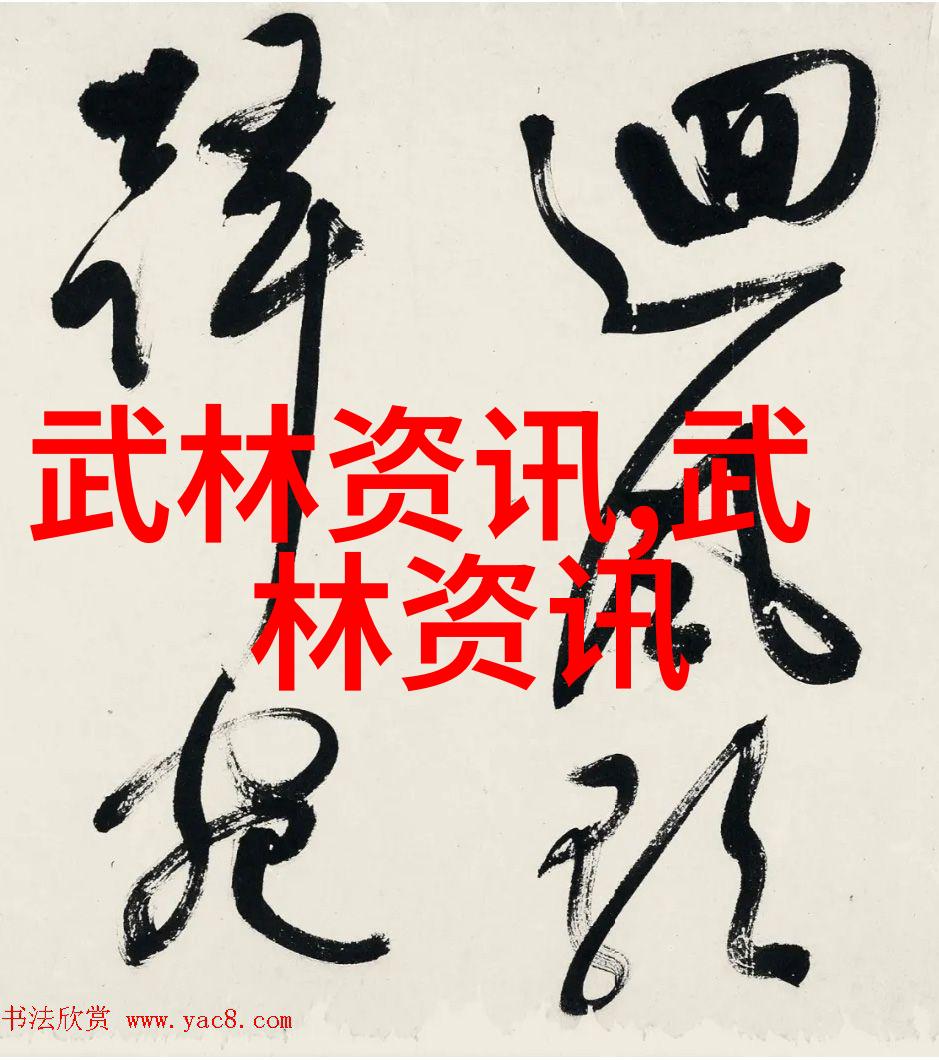 迴風
武林资讯,武
林资讯
书法欣赏 www.yac8.com